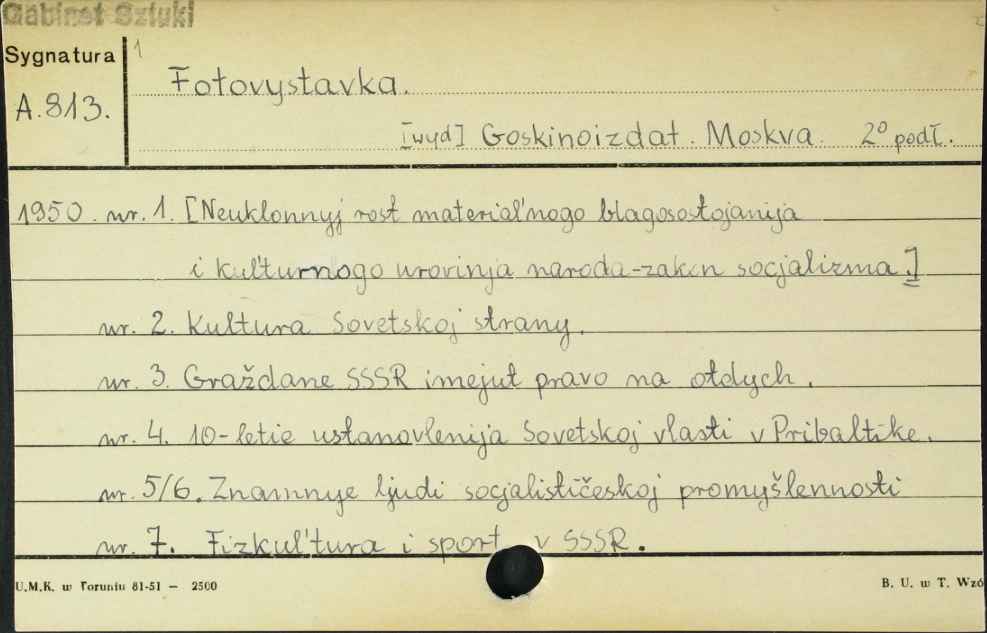 Gabinet Sztuki
Sygnatura
A.813.
1
Fotovystavka.
[wyd] Goskinoizdat. Moskva. 2° podł.
1950. nr. 1. [Neuklonnyj rost material'nogo blagosostojanija
i kul'turnogo urovinja naroda-zakon socjalizma.]
nr. 2. Kultura Sovetskoj strany.
nr. 3. Graždane SSSR imejut pravo na otdych.
nr. 4. 10-letie ustanovlenija Sovetskoj vlasti v Pribaltike.
nr. 5/6. Znamnye ljudi socjalističeskoj promyšlennosti
nr. 7. Fizkul'tura i sport v SSSR.
U.M.K. w Toruniu 81-51 — 2500
B. U. w T. Wzó